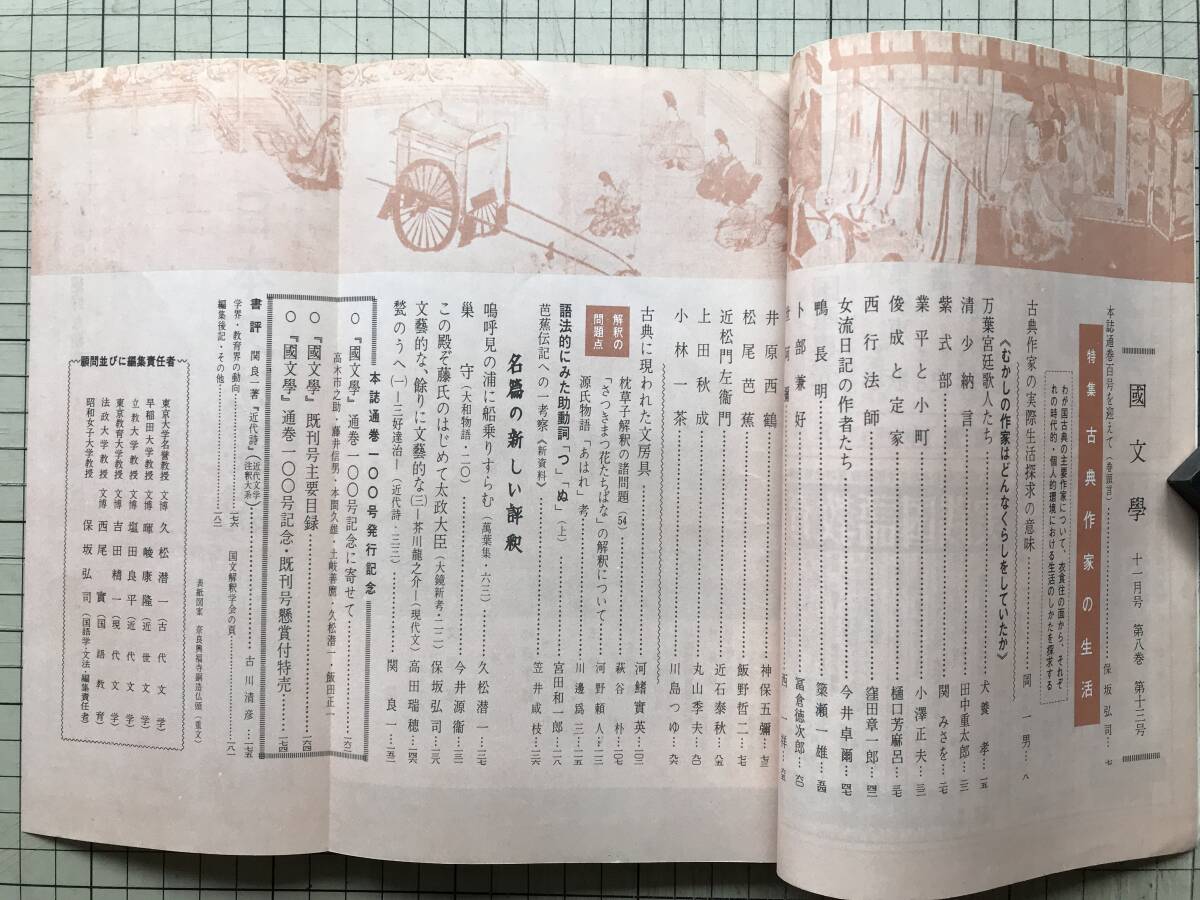 國文學 十一月号 第八巻 第十三号
本誌通巻百号を迎えて（巻頭言）……保坂弘司…七
特集 古典作家の生活
わが国古典の主要作家について、衣食住の面から、それぞ
れの時代的・個人的環境における生活のしかたを探求する
古典作家の実際生活探求の意味……岡一男…八
《むかしの作家はどんなくらしをしていたか》
万葉宮廷歌人たち……犬養孝…一五
清少納言……田中重太郎…二一
紫式部……関みさを…二七
業平と小町……小澤正夫…三二
俊成と定家……樋口芳麻呂…三七
西行法師……窪田章一郎…四二
女流日記の作者たち……今井卓爾…四七
鴨長明……簗瀬一雄…五四
卜部兼好……冨倉徳次郎…六〇
井原西鶴……神保五彌…七三
松尾芭蕉……飯野哲二…七九
近松門左衞門……近石泰秋…八五
上田秋成……丸山季夫…九〇
小林一茶……川島つゆ…九六
古典に現われた文房具……河鰭實英…一〇三
解釈の問題点
枕草子解釈の諸問題（54）……萩谷朴…一〇七
「さつきまつ花たちばな」の解釈について……河野頼人…一一二
源氏物語「あはれ」考……川邊爲三…一一五
語法的にみた助動詞「つ」「ぬ」（上）……宮田和一郎…一一八
芭蕉伝記への一考察《新資料》……笠井成枝…一二六
名篇の新しい評釈
嗚呼見の浦に船乗りすらむ（萬葉集・六三）……久松潜一…一二七
巣守（大和物語・二〇）……今井源衞…一三一
この殿ぞ藤氏のはじめて太政大臣（大鏡新考二二）……保坂弘司…一三八
文藝的な、餘りに文藝的な（三）―芥川龍之介―（現代文）……高田瑞穂…一四六
甃のうへ（一）―三好達治―（近代詩・三三）……関良一…一五二
本誌通巻一〇〇号発行記念
○『國文學』通巻一〇〇号記念に寄せて……一六二
高木市之助・藤井信男・本間久雄・土岐善麿・久松潜一・飯田正一
○『國文學』既刊号主要目録……一六四
○『國文學』通巻一〇〇号記念・既刊号懸賞付特売……一七四
書評 関良一著『近代詩』（近代文学注釈大系）……古川清彦…一七五
学界・教育界の動向……一七六
国文解釈学会の頁……一八一
編集後記・その他……一八二
表紙図案 奈良興福寺銅造仏頭（重文）
顧問並びに編集責任者
東京大学名誉教授 文博 久松潜一（古代文学）
早稲田大学教授 文博 暉峻康隆（近世文学）
立教大学教授 文博 塩田良平（近代文学）
東京教育大学教授 文博 吉田精一（現代文学）
法政大学教授 文博 西尾實（国語教育）
昭和女子大学教授 保坂弘司（国語学・文法・編集責任者）